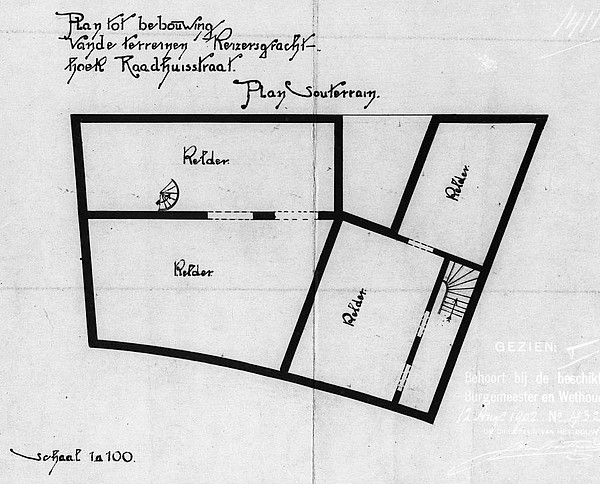 Plan tot bebouwing
van de terreinen Keizersgracht-
hoek Raadhuisstraat.
Plan Souterrain.
Kelder.
Kelder.
Kelder.
Kelder.
GEZIEN:
Behoort bij de beschik
Burgemeester en Wethou
1902. No.
schaal 1 a 100.